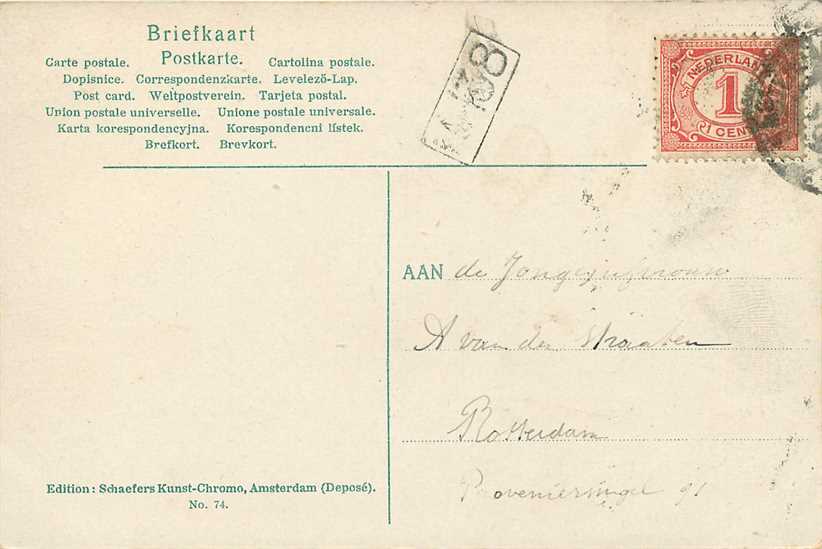 Briefkaart
Postkarte.
Carte postale. Cartolina postale.
Dopisnice. Correspondenzkarte. Levelező-Lap.
Post card. Weltpostverein. Tarjeta postal.
Union postale universelle. Unione postale universale.
Karta korespondencyjna. Korespondencni lístek.
Brefkort. Brevkort.
138
NEDERLAND
1
1 CENT
AAN de Jongejufvrouw
A van der Straaten
Rotterdam
Proveniersingel 91
Edition: Schaefers Kunst-Chromo, Amsterdam (Deposé).
No. 74.